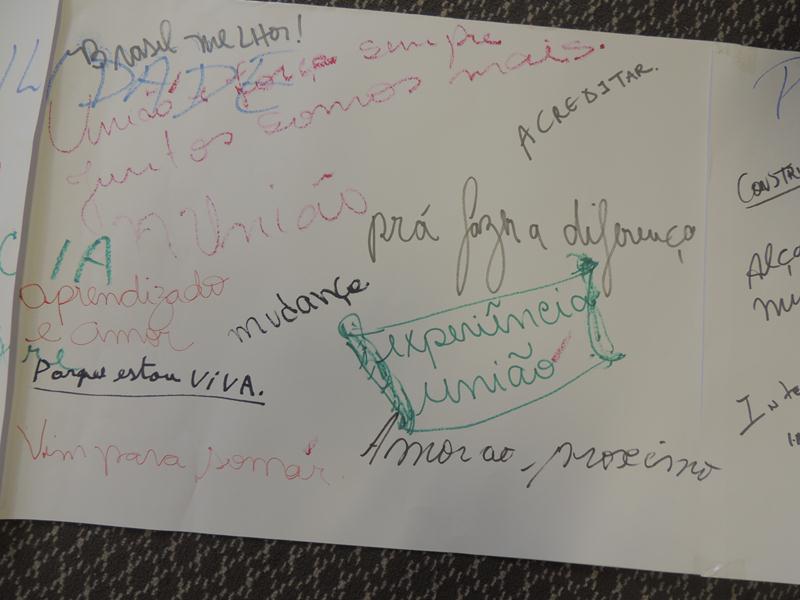 Brasil meLHor!
DADE
União é força sempre
juntos somos mais.
ACREDITAR.
União
prá fazer a diferença
CIA
aprendizado
e amor
mudança
experiência
união
Porque estou VIVA.
Vim para somar.
Amor ao próximo